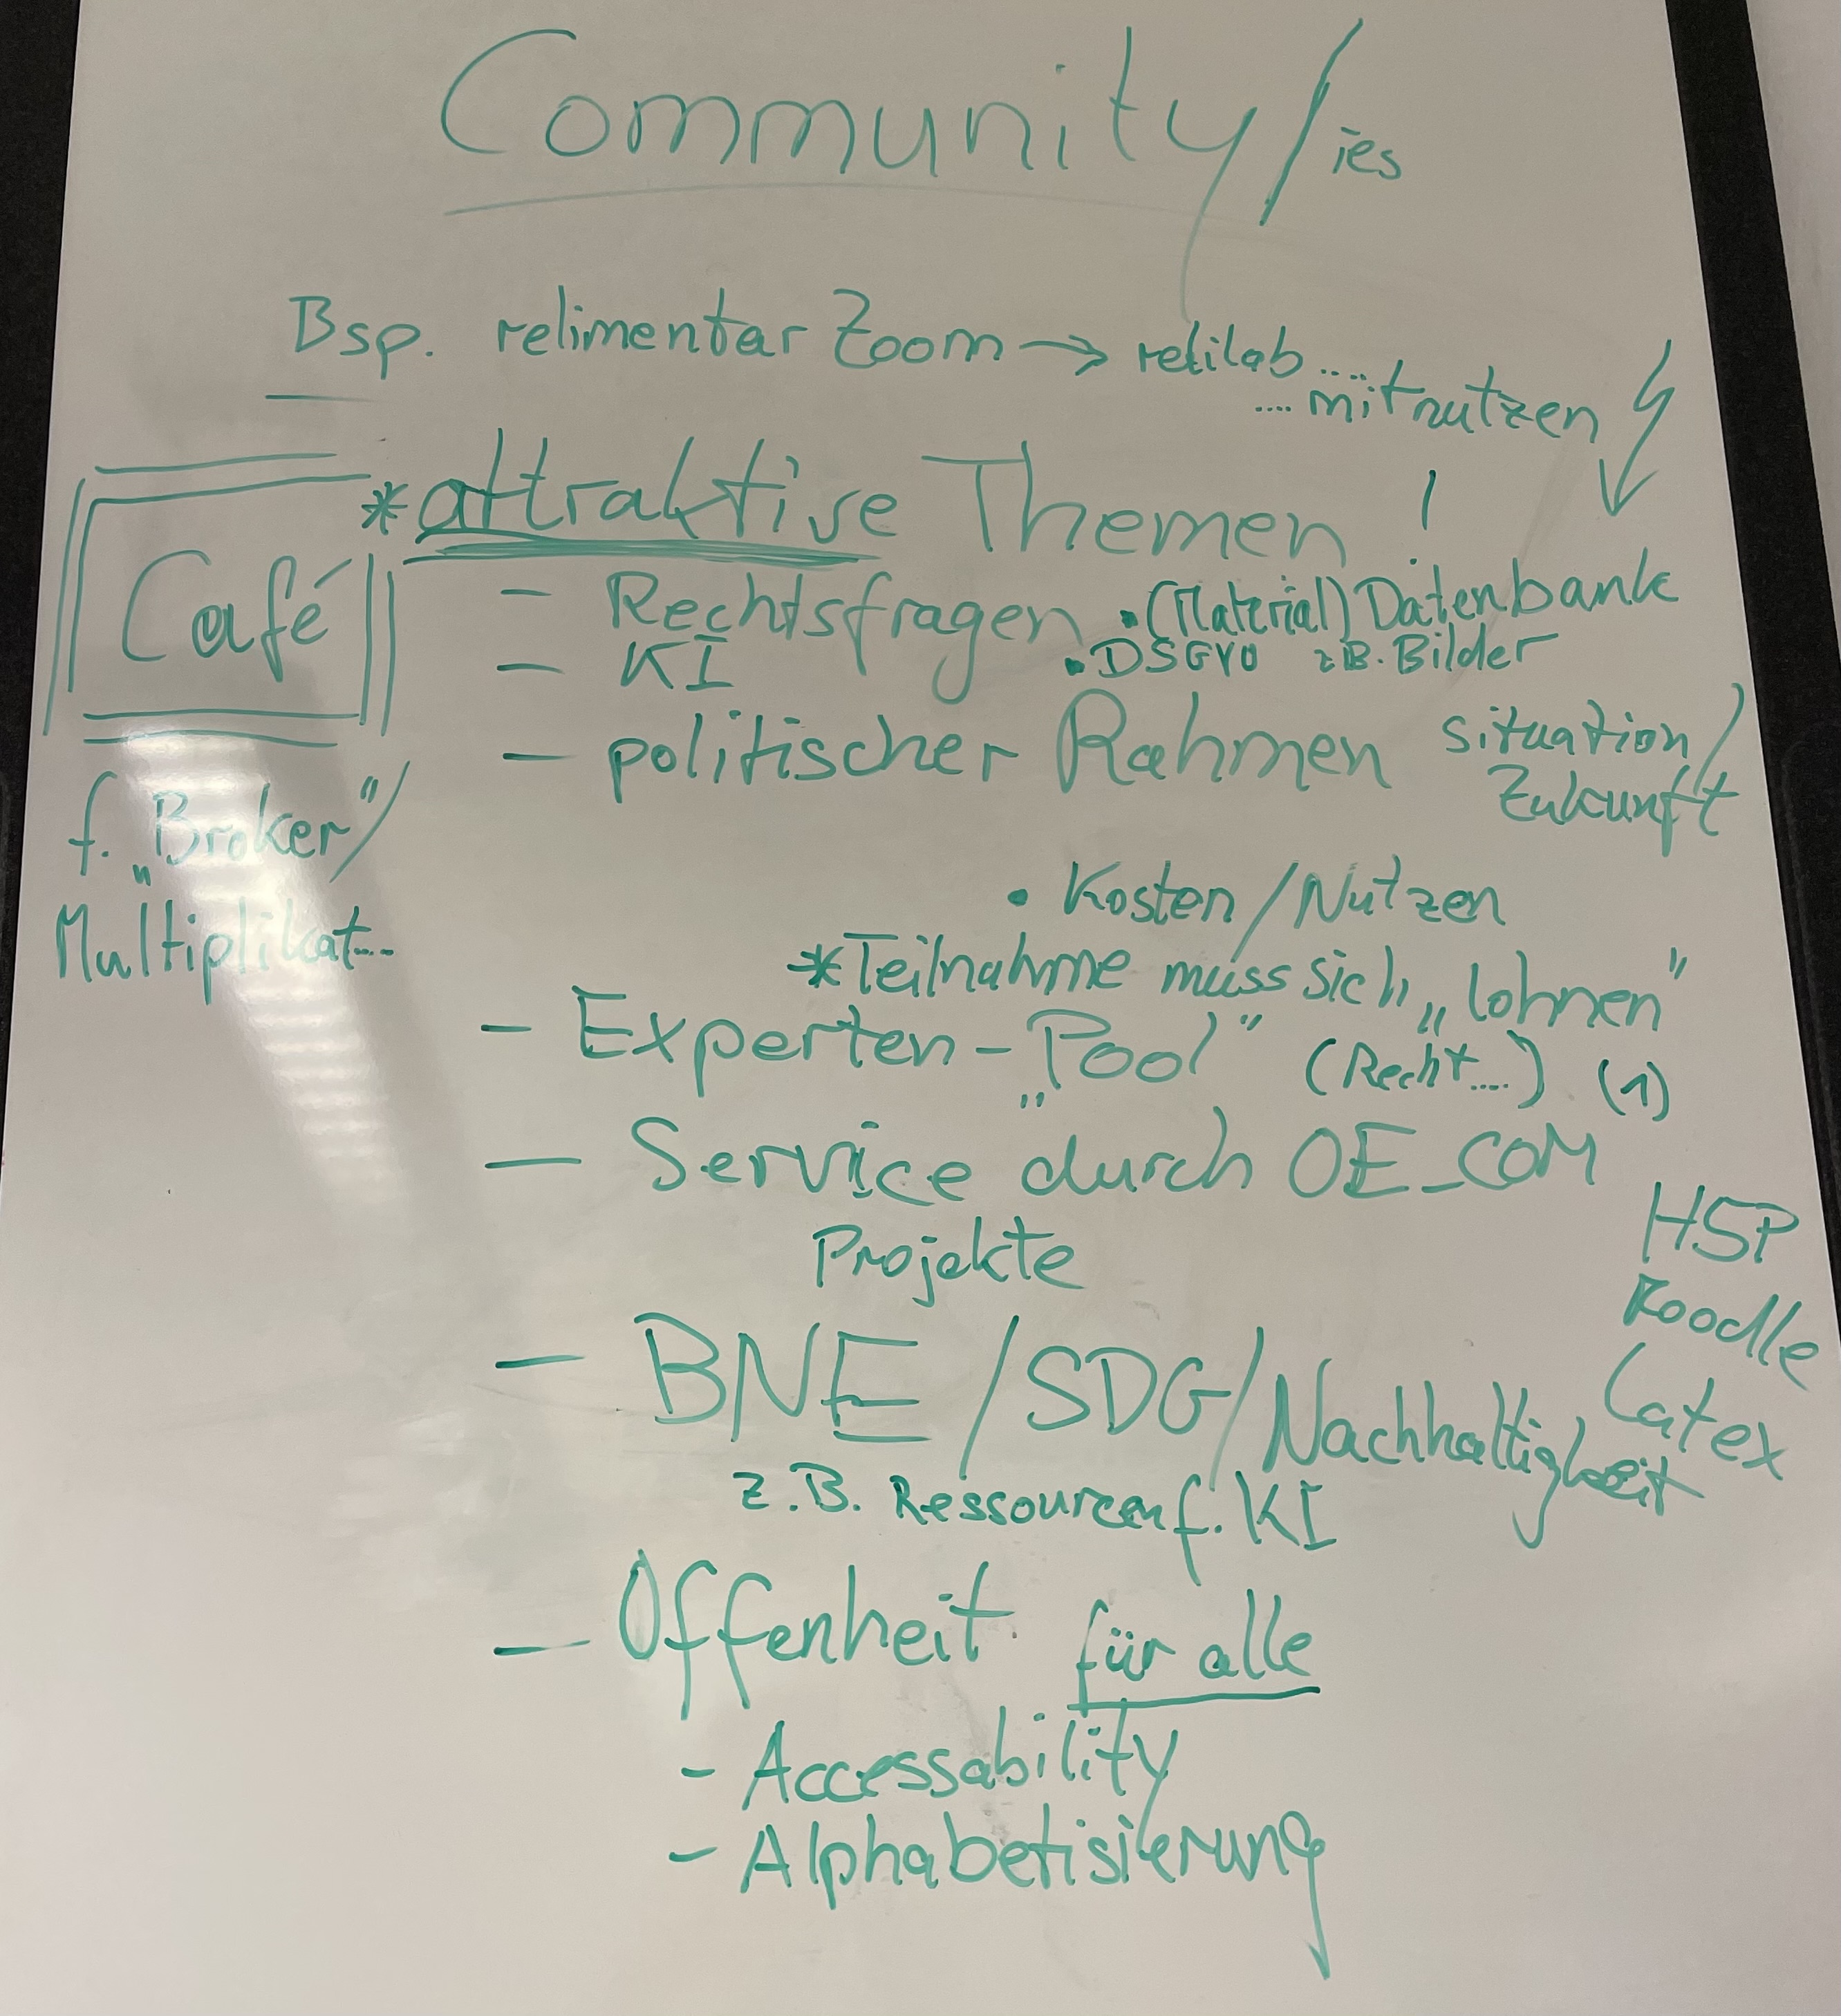 Community/ies
Bsp. relimentar Zoom → relilab ....
.... mitnutzen
*attraktive Themen !
Café
f. „Broker"/
Multiplikat...
- Rechtsfragen • (Material) Datenbank
- KI • DSGVO z.B. Bilder
- politischer Rahmen situation/
Zukunft
• Kosten/Nutzen
*Teilnahme muss sich „lohnen"
- Experten-„Pool" (Recht....) (1)
- Service durch OE_COM
Projekte
H5P
Latex
- BNE/SDG/Nachhaltigkeit
z.B. Ressourcen f. KI
- Offenheit für alle
- Accessability
- Alphabetisierung